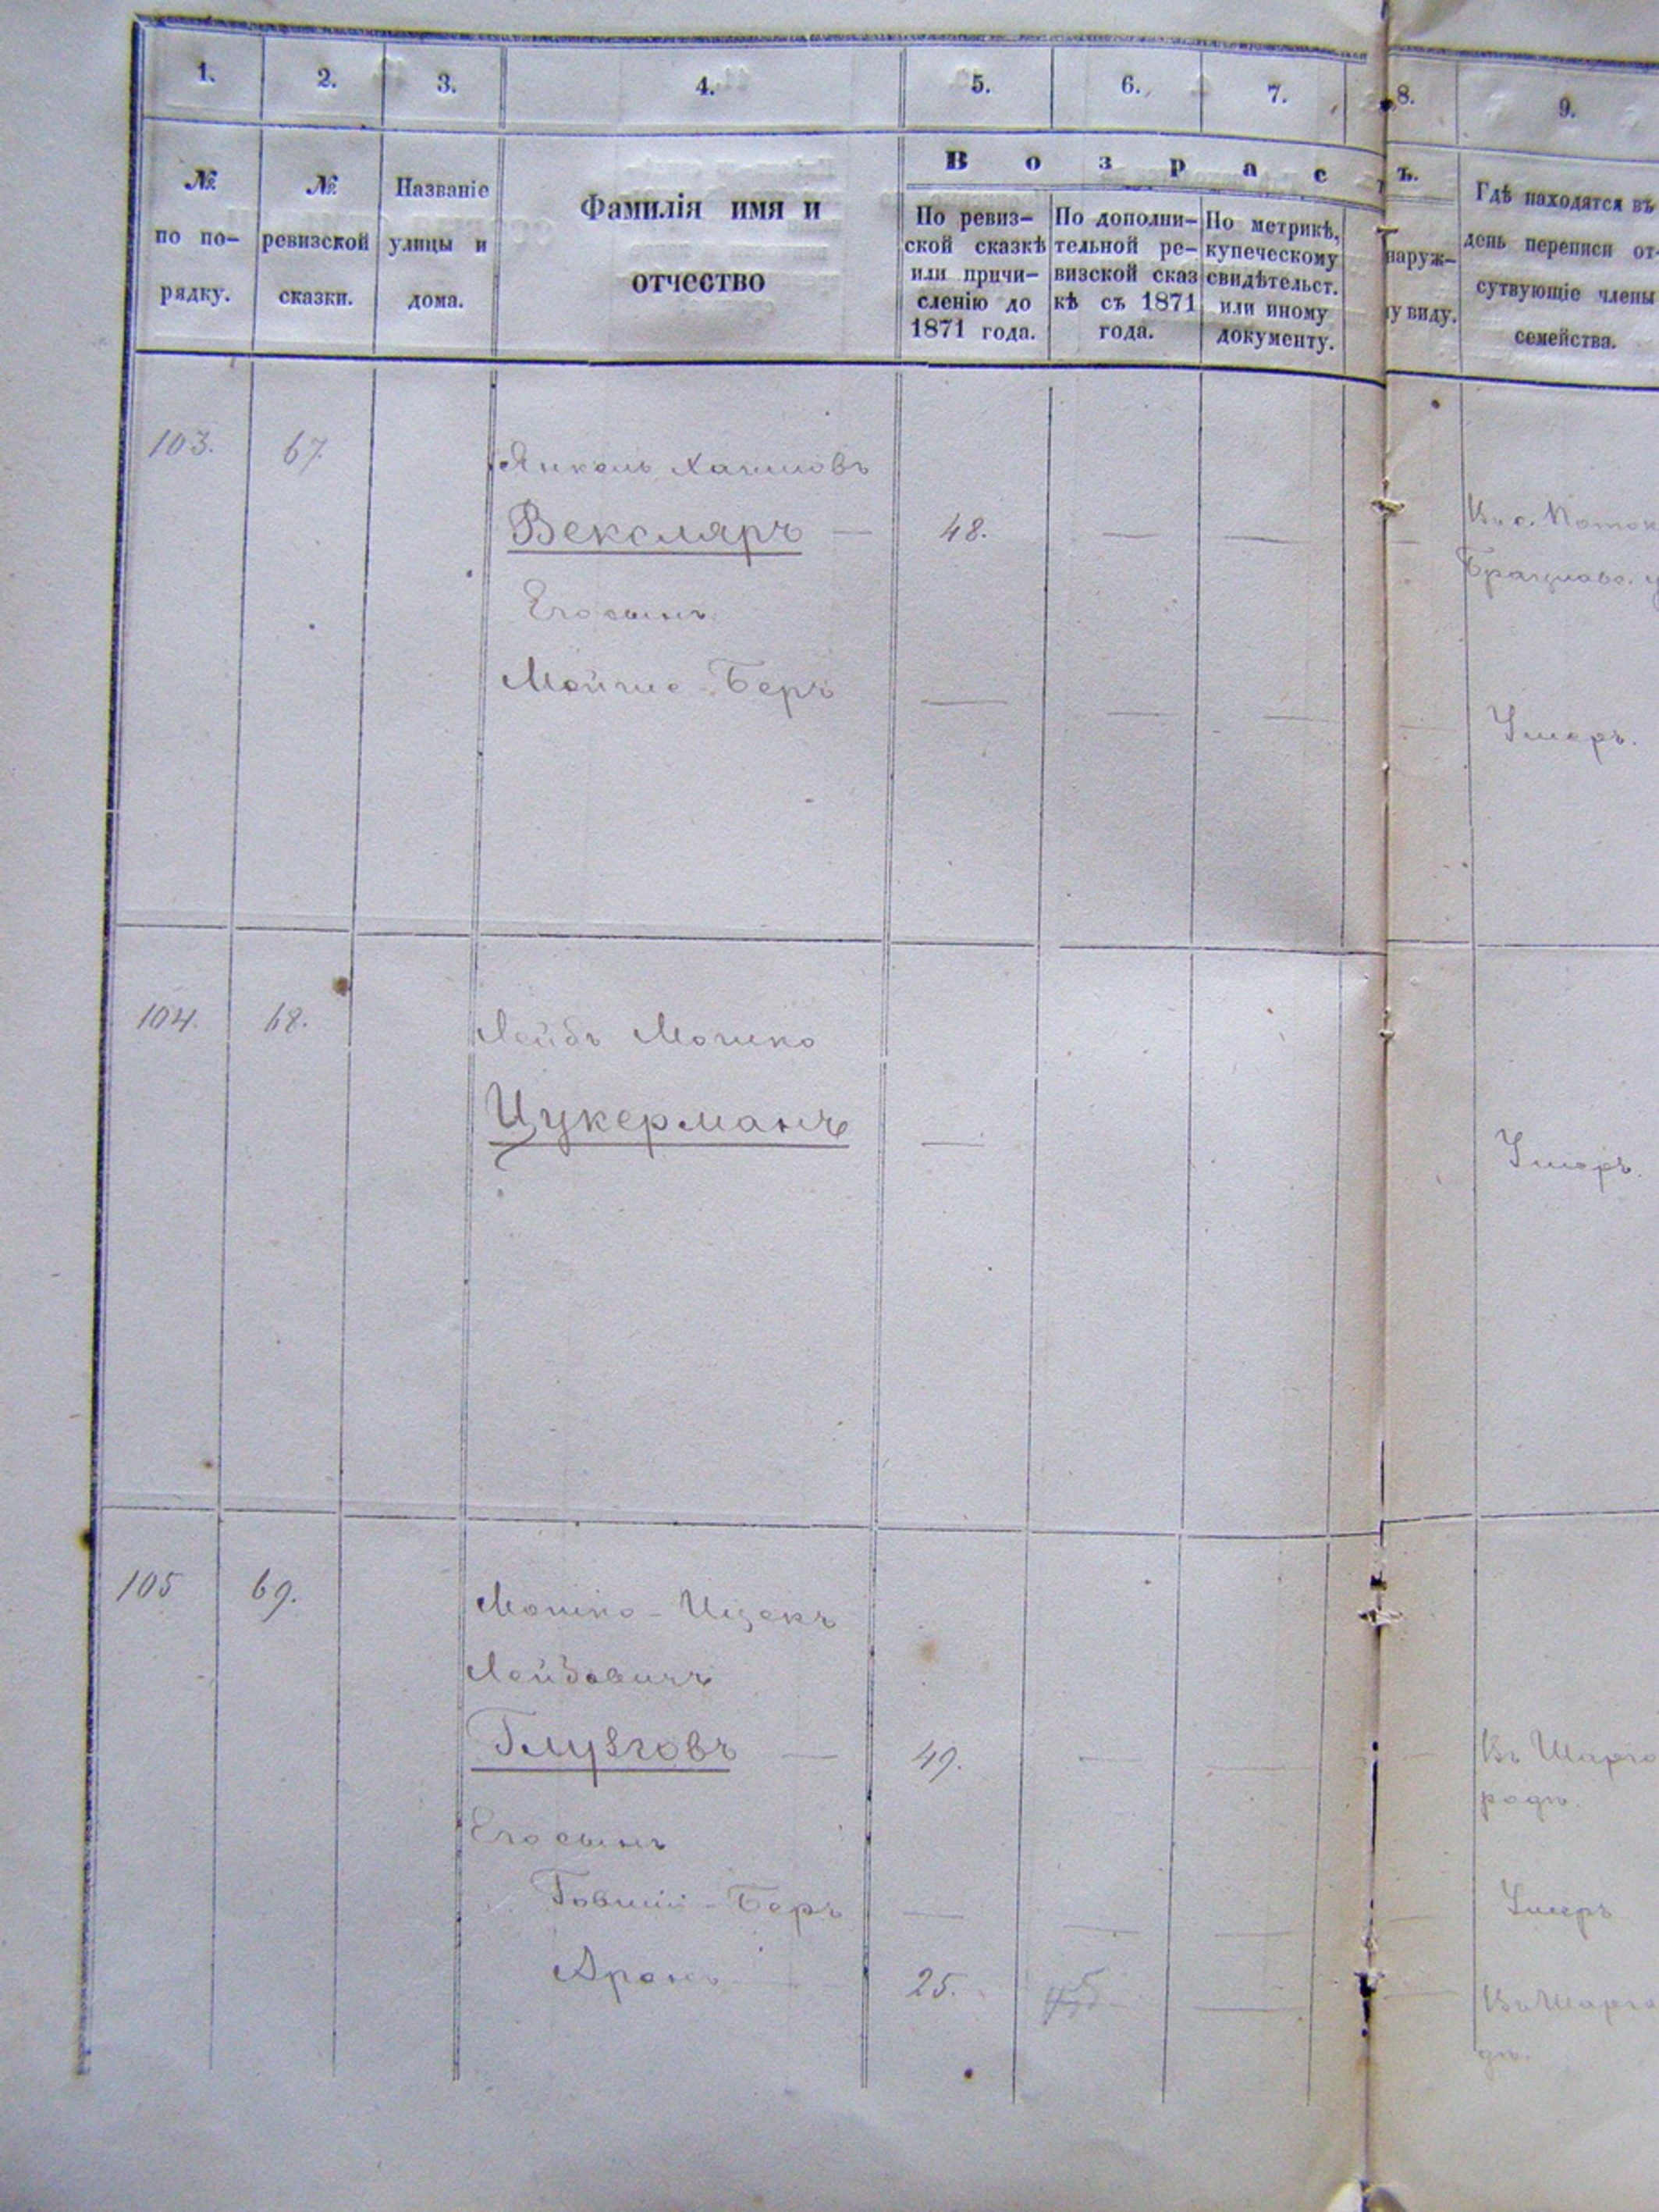 1. 2. 3. 4. 5. 6. 7. 8. 9.
№ по по-
рядку.
№ ревизской
сказки.
Названіе
улицы и
дома.
Фамилія имя и
отчество
Возрастъ.
По ревиз-
ской сказкѣ
или причи-
сленію до
1871 года.
По дополни-
тельной ре-
визской сказ
кѣ съ 1871
года.
По метрикѣ,
купеческому
свидѣтельст.
или иному
документу.
наруж-
у виду.
Гдѣ находятся въ
день переписи от-
сутвующіе члены
семейства.
103. 67. Янкель Хаимовъ
Вексляръ — 48. — — — Въ с. Поток
Брацлавс. у
Его сынъ
Мойше-Беръ — — — — Умеръ.
104. 68. Лейбъ Мошко
Цукерманъ — Умеръ.
105 69. Мошко-Ицекъ
Лейбовичъ
Глузговъ — 49. — — — Въ Шарго
родѣ.
Его сынъ
Говшій-Беръ — — — — Умеръ
Аронъ — 25. — — Въ Шарго
дѣ.